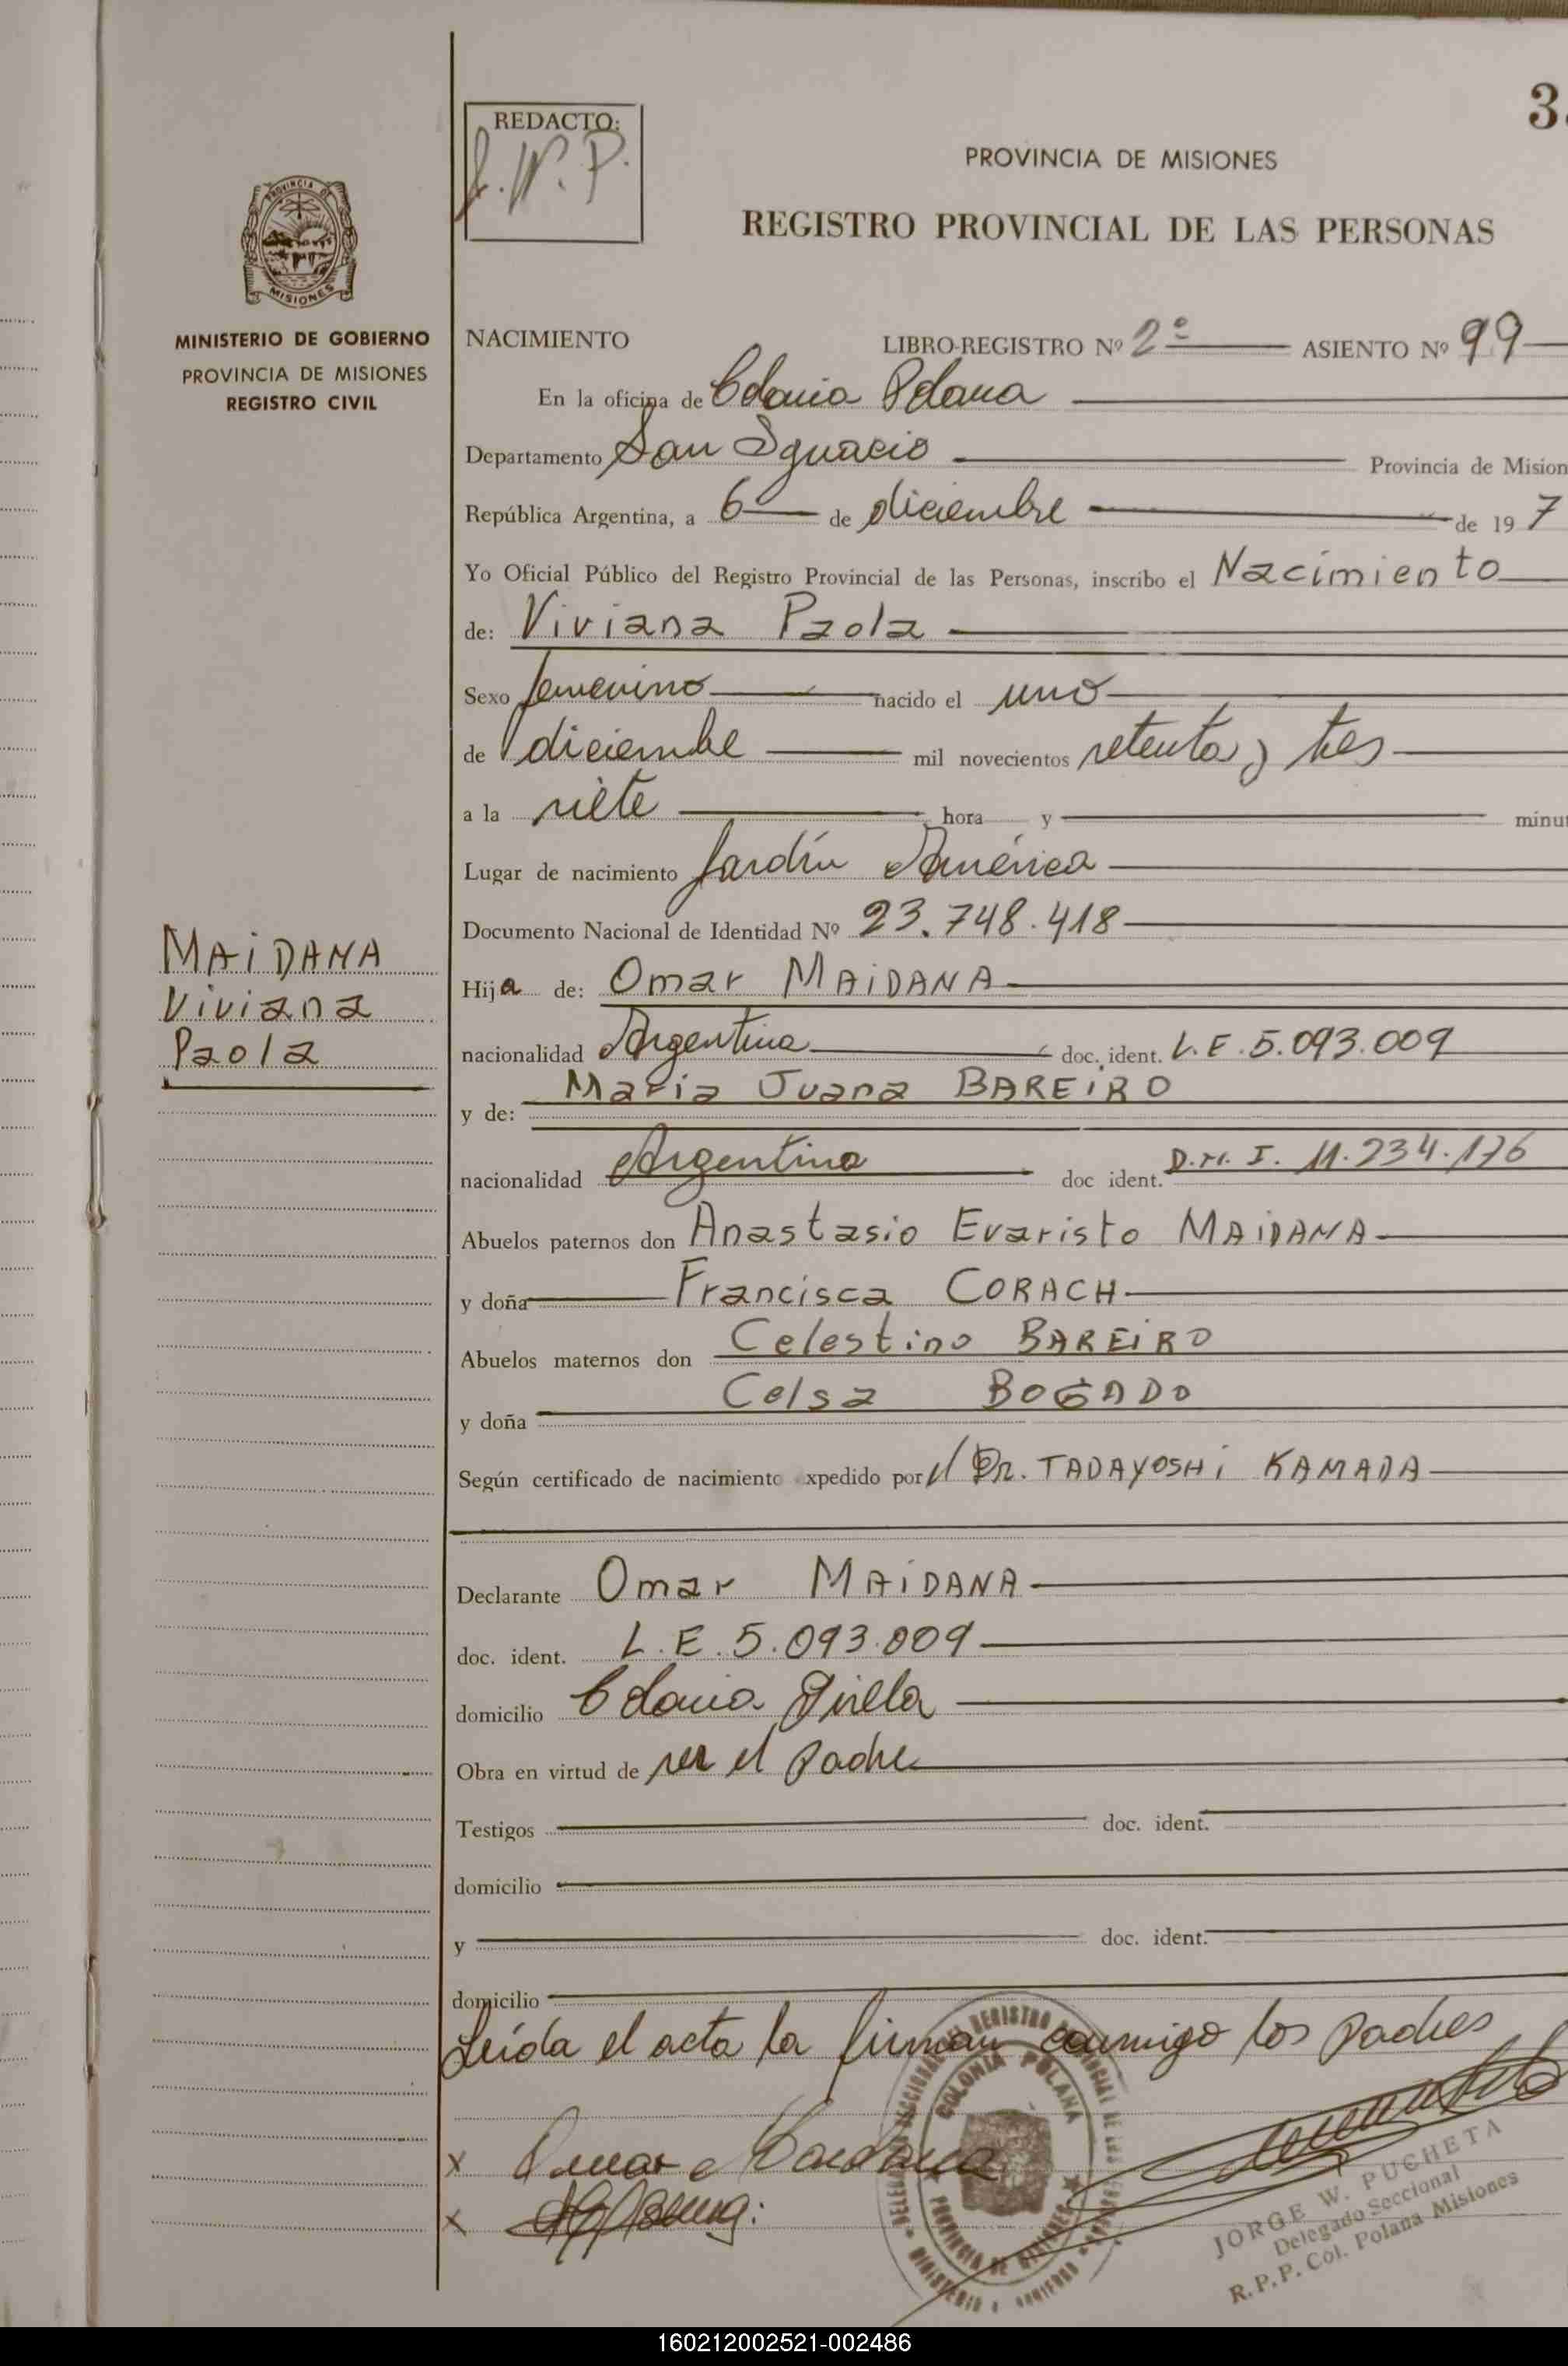 3
REDACTO:
J.W.P.
PROVINCIA DE MISIONES
REGISTRO PROVINCIAL DE LAS PERSONAS
PROVINCIA DE
MISIONES
MINISTERIO DE GOBIERNO
PROVINCIA DE MISIONES
REGISTRO CIVIL
NACIMIENTO LIBRO-REGISTRO Nº 2º ASIENTO Nº 99
En la oficina de Colonia Polana
Departamento San Ignacio Provincia de Mision
República Argentina, a 6 de diciembre de 19 7
Yo Oficial Público del Registro Provincial de las Personas, inscribo el Nacimiento
de: Viviana Paola
Sexo femenino nacido el uno
de diciembre mil novecientos setenta y tres
a la siete hora y minut
Lugar de nacimiento Jardín América
Documento Nacional de Identidad Nº 23.748.418
MAIDANA
Viviana
Paola
Hija de: Omar MAIDANA
nacionalidad Argentina doc. ident. L.E. 5.093.009
y de: Maria Juana BAREIRO
nacionalidad Argentina doc ident. D.N.I. 11.234.176
Abuelos paternos don Anastasio Evaristo MAIDANA
y doña Francisca CORACH
Abuelos maternos don Celestino BAREIRO
y doña Celsa BOGADO
Según certificado de nacimiento expedido por el Dr. TADAYOSHI KAMADA
Declarante Omar MAIDANA
doc. ident. L.E. 5.093.009
domicilio Colonia
Obra en virtud de ser el padre
Testigos doc. ident.
domicilio
y doc. ident.
domicilio
Leída el acta la firman conmigo los padres
COLONIA POLANA
PROVINCIA DE MISIONES
x Omar Maidana
x
JORGE W. PUCHETA
Delegado Seccional
R.P.P. Col. Polana Misiones
160212002521-002486